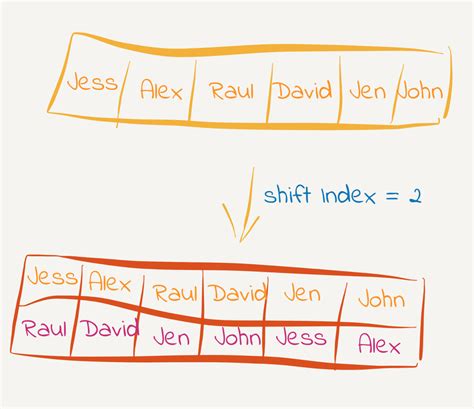 Jess Alex Raul David Jen John
shift Index = 2
Jess Alex Raul David Jen John
Raul David Jen John Jess Alex